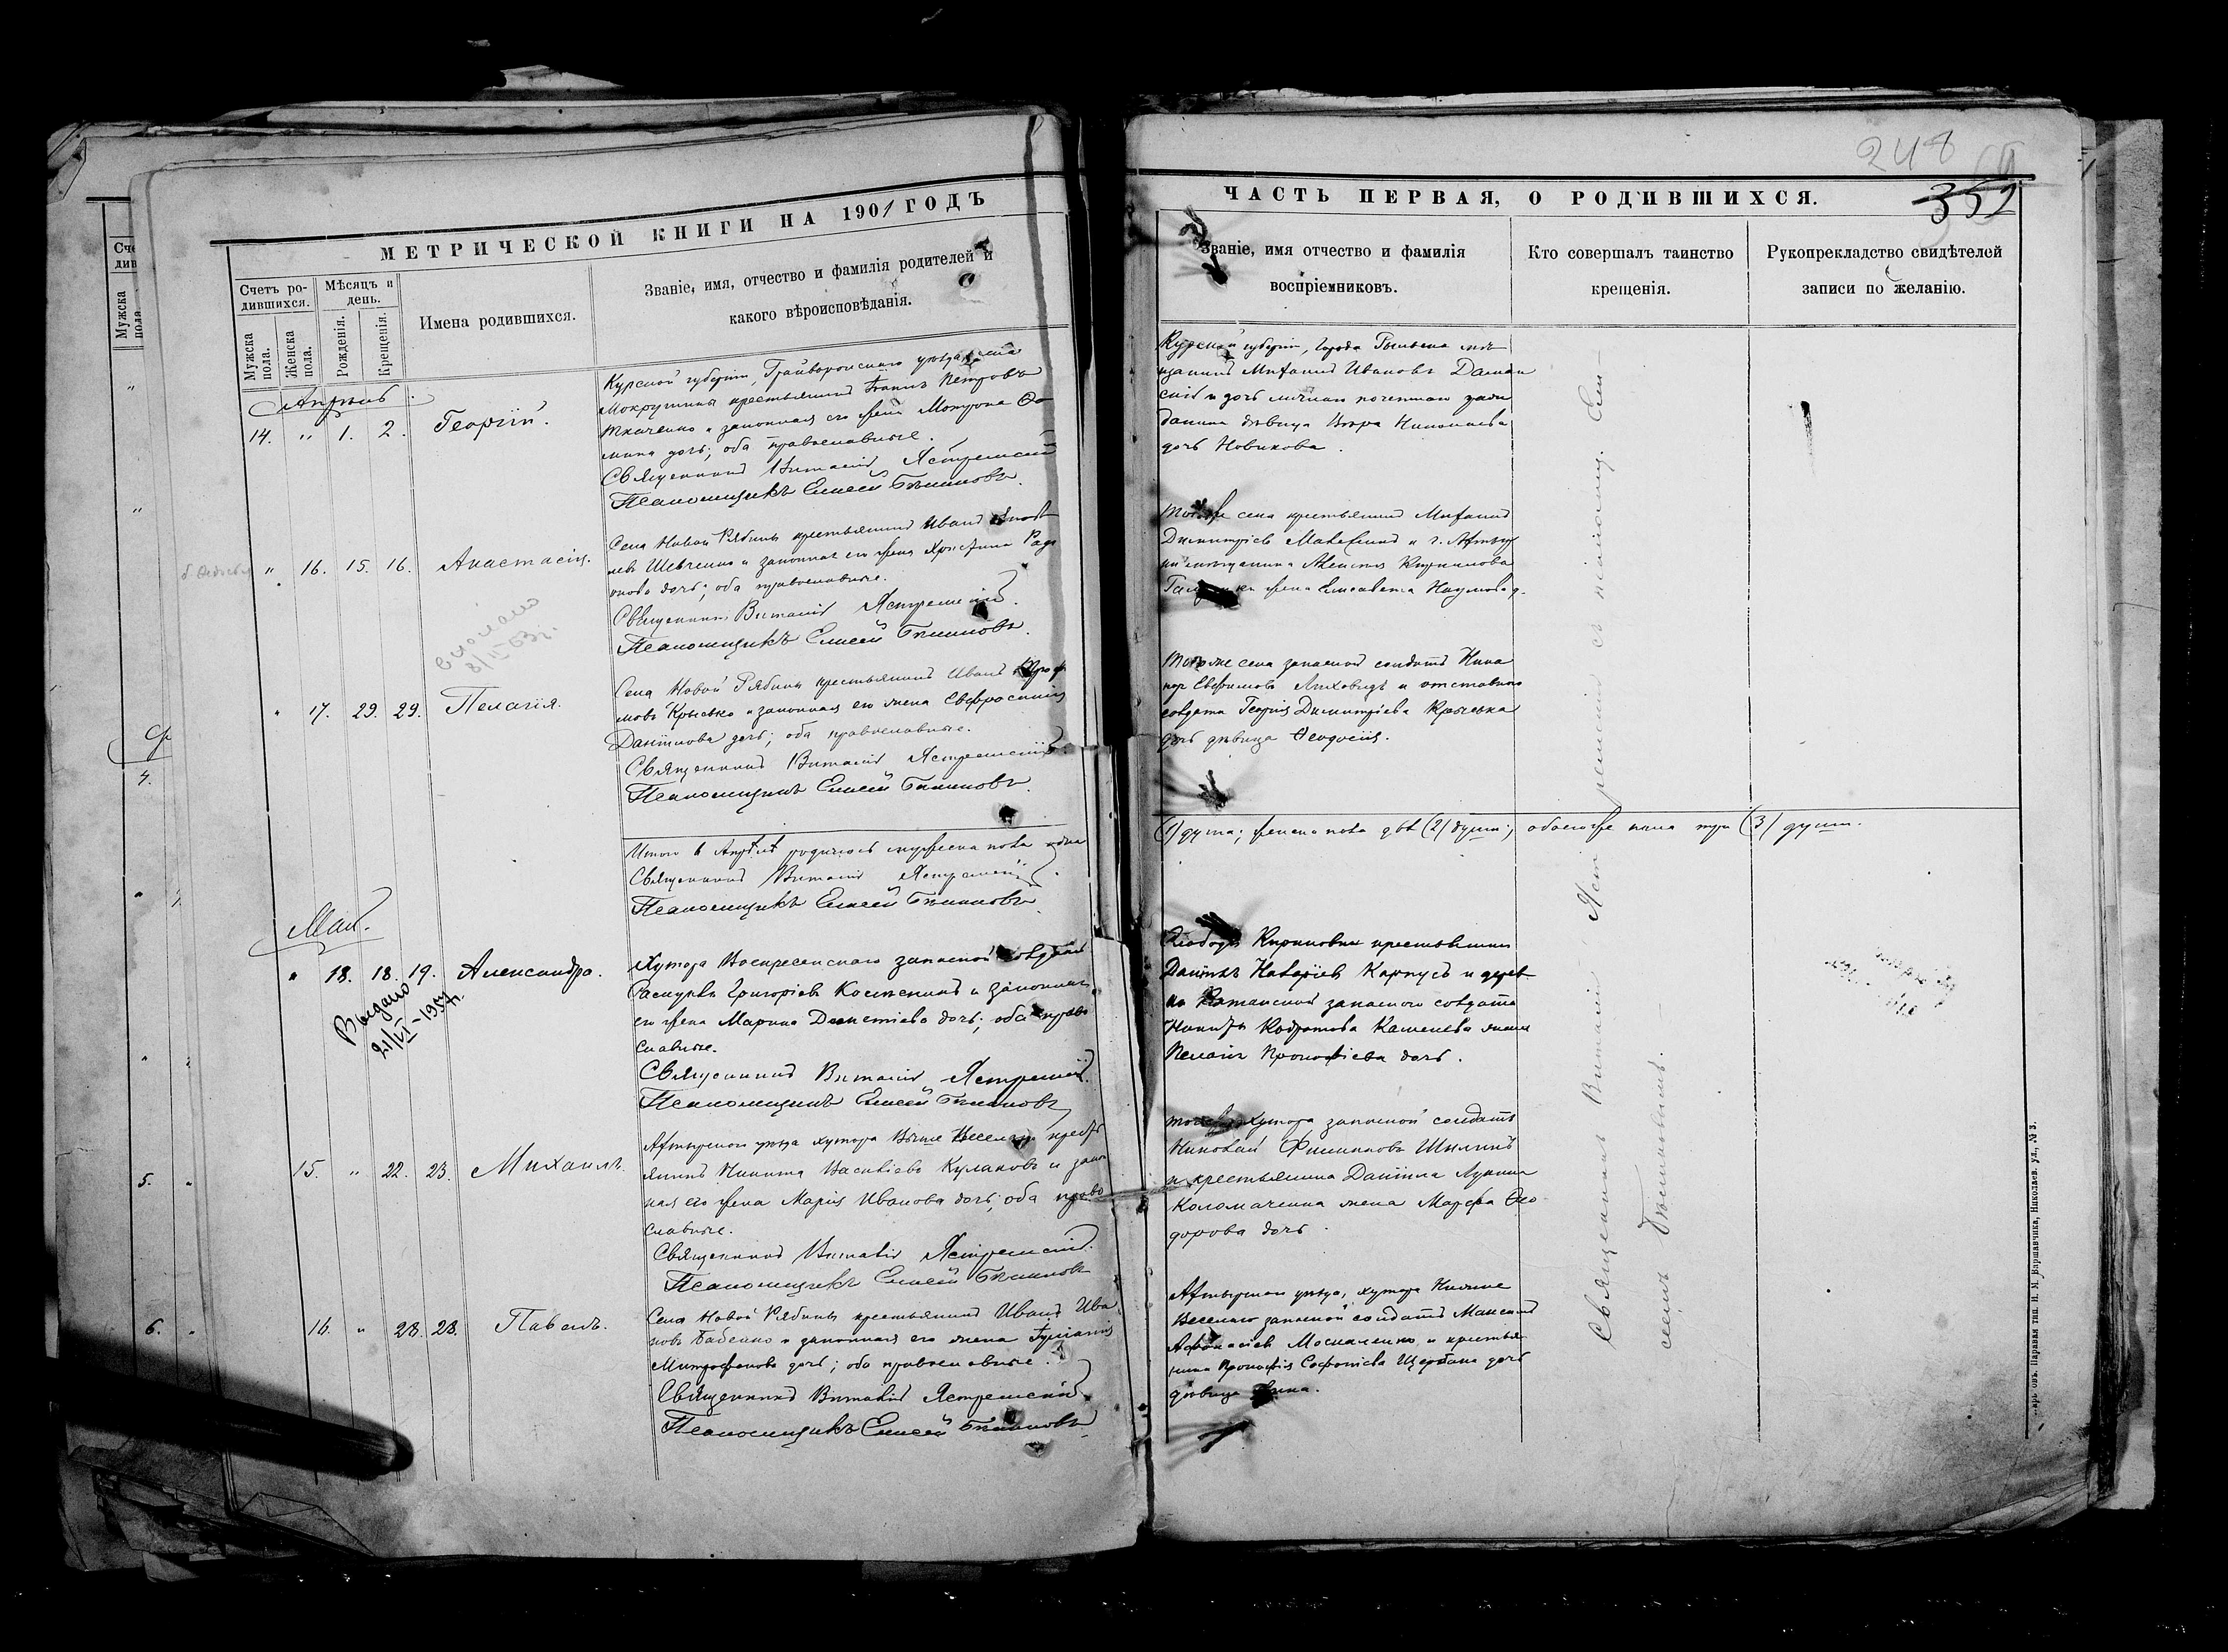 МЕТРИЧЕСКОЙ КНИГИ НА 1901 ГОДЪ
Счетъ ро-
дившихся.
Мѣсяцъ и
день.
Мужска
пола.
Женска
пола.
Рожденія.
Крещенія.
Имена родившихся.
Званіе, имя, отчество и фамилія родителей и
какого вѣроисповѣданія.
Апрѣль.
14. " 1. 2. Георгій.
Курской губерніи, Грайворонскаго уѣзда, села
Мокрушины крестьянинъ Іоаннъ Петровъ
Ткаченко и законная его жена Матрона Ѳо
мина дочь; оба православные.
Священникъ Виталій Ястремскій
Псаломщикъ Елисей
" 16. 15. 16. Анастасія.
Села Новой Рябины крестьянинъ Иванъ
левъ Шевченко и законная его жена Христина Роді
онова дочь; оба православные.
Священникъ Виталій Ястремскій.
Псаломщикъ Елисей
" 17. 29. 29. Пелагія.
Села Новой Рябины крестьянинъ Иванъ Троф
мовъ Крысько и законная его жена Евфросинія
Даніилова дочь; оба православные.
Священникъ Виталій Ястремскій.
Псаломщикъ Елисей
Итого въ Апрѣлѣ родилось мужеска пола одна
Священникъ Виталій Ястремскій
Псаломщикъ Елисей
Май.
" 18. 18. 19. Александра.
Выдано
21/VI-1957г.
Хутора Воскресенскаго запасной солдатъ
Григоріевъ Костенко и законная
его жена Марина дочь; оба право
славные.
Священникъ Виталій Ястремскій.
Псаломщикъ Елисей
15. " 22. 23. Михаилъ.
Ахтырскаго уѣзда хутора Выше Веселаго крестъ
янинъ Никита Васильевъ Кулаковъ и закон
ная его жена Марія Иванова дочь; оба право
славные.
Священникъ Виталій Ястремскій.
Псаломщикъ Елисей
16. " 28. 28. Павелъ.
Села Новой Рябины крестьянинъ Иванъ Ива
новъ Бабенко и законная его жена Іуліанія
Митрофанова дочь; оба православные.
Священникъ Виталій Ястремскій
Псаломщикъ Елисей
248
352
ЧАСТЬ ПЕРВАЯ, О РОДИВШИХСЯ.
Званіе, имя отчество и фамилія
воспріемниковъ.
Кто совершалъ таинство
крещенія.
Рукоприкладство свидѣтелей
записи по желанію.
Курской губерніи, города Рыльска мѣ
щанинъ Михаилъ Ивановъ Даман
скій и дочь личнаго почетнаго граж
данина дѣвица Вѣра Николаева
дочь Новикова.
Того же села крестьянинъ Михаилъ
Димитріевъ и г. Ахтыр
ки мѣщанина Алексія Кириллова
жена Елисавета Наумова д.
Того же села запасной солдатъ Ника
норъ Евфимовъ Лиховидъ и отставного
солдата Георгія Димитріева Крыська
дочь дѣвица Ѳеодосія.
(1) душа; женска пола двѣ (2) души; обоего же пола три (3) души.
Слободы Кириковки крестьянинъ
Даніилъ Назаріевъ Карпусь и дерев
ни Катанской запасного солдата
Никиты Кодратова Каменева жена
Пелагія Прокофіева дочь.
того же хутора запасной солдатъ
Николай Филипповъ Шилинъ
и крестьянина Даніила Лукина
Коломачина жена Марфа Ѳео
дорова дочь.
Ахтырскаго уѣзда, хутора Нижне
Веселаго запасной солдатъ Максимъ
Афанасіевъ Москаленко и крестья
нина Прокофія Софоніева Щербака дочь
дѣвица Анна.
Священникъ Виталій Ястремскій съ псаломщ. Ели-
сеемъ